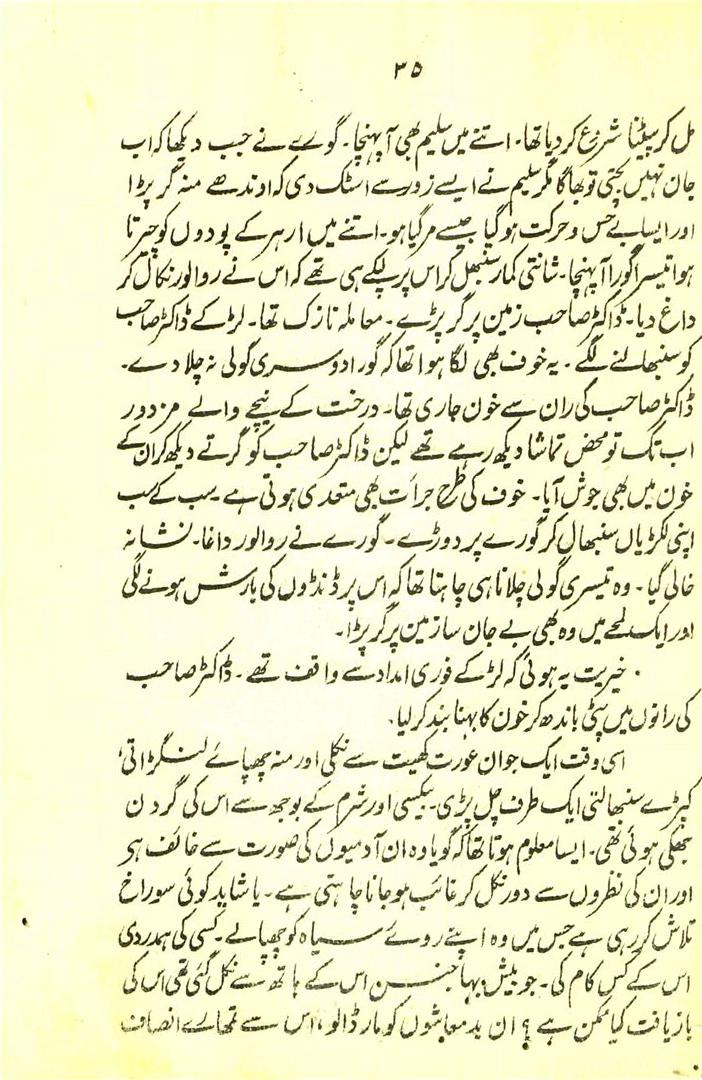 ۳۵
مل کر پیٹنا شروع کر دیا تھا۔ اتنے میں سلیم بھی آپہنچا۔ گورے نے جب دیکھا کہ اب
جان نہیں بچتی تو بھاگا مگر سلیم نے ایسے زور سے اسٹک دی کہ اوندھے منہ گر پڑا
اور ایسا بے حس و حرکت ہو گیا جیسے مر گیا ہو۔ اتنے میں ارہر کے پودوں کو چیرتا
ہوا تیسرا گورا آپہنچا۔ شانتی کمار سنبھل کر اس پر لپکے ہی تھے کہ اس نے روالور نکال کر
داغ دیا۔ ڈاکٹر صاحب زمین پر گر پڑے۔ معاملہ نازک تھا۔ لڑکے ڈاکٹر صاحب
کو سنبھالنے لگے۔ یہ خوف بھی لگا ہوا تھا کہ گورا دوسری گولی نہ چلا دے۔
ڈاکٹر صاحب کی ران سے خون جاری تھا۔ درخت کے نیچے والے مزدور
اب تک تو محض تماشا دیکھ رہے تھے لیکن ڈاکٹر صاحب کو گرتے دیکھ کر ان کے
خون میں بھی جوش آیا۔ خوف کی طرح جرأت بھی متعدی ہوتی ہے۔ سب کے سب
اپنی لکڑیاں سنبھال کر گورے پر دوڑے۔ گورے نے روالور داغا۔ نشانہ
خالی گیا۔ وہ تیسری گولی چلانا ہی چاہتا تھا کہ اس پر ڈنڈوں کی بارش ہونے لگی
اور ایک لمحے میں وہ بھی بے جان سا زمین پر گر پڑا۔
خیریت یہ ہوئی کہ لڑکے فوری امداد سے واقف تھے۔ ڈاکٹر صاحب
کی رانوں میں پٹی باندھ کر خون کا بہنا بند کر لیا۔
اسی وقت ایک جوان عورت کھیت سے نکلی اور منہ چھپائے لنگڑاتی،
کپڑے سنبھالتی ایک طرف چل پڑی۔ بیکسی اور شرم کے بوجھ سے اس کی گردن
جھکی ہوئی تھی۔ ایسا معلوم ہوتا تھا کہ گویا وہ ان آدمیوں کی صورت سے خائف ہے
اور ان کی نظروں سے دور نکل کر غائب ہو جانا چاہتی ہے۔ یا شاید کوئی سوراخ
تلاش کر رہی ہے جس میں وہ اپنے روئے سیاہ کو چھپالے۔ کسی کی ہمدردی
اس کے کس کام کی۔ جو بیش بہا جنس اس کے ہاتھ سے نکل گئی تھی اس کی
بازیافت کیا ممکن ہے؟ ان بدمعاشوں کو مار ڈالو، اس سے تمہارے انصاف